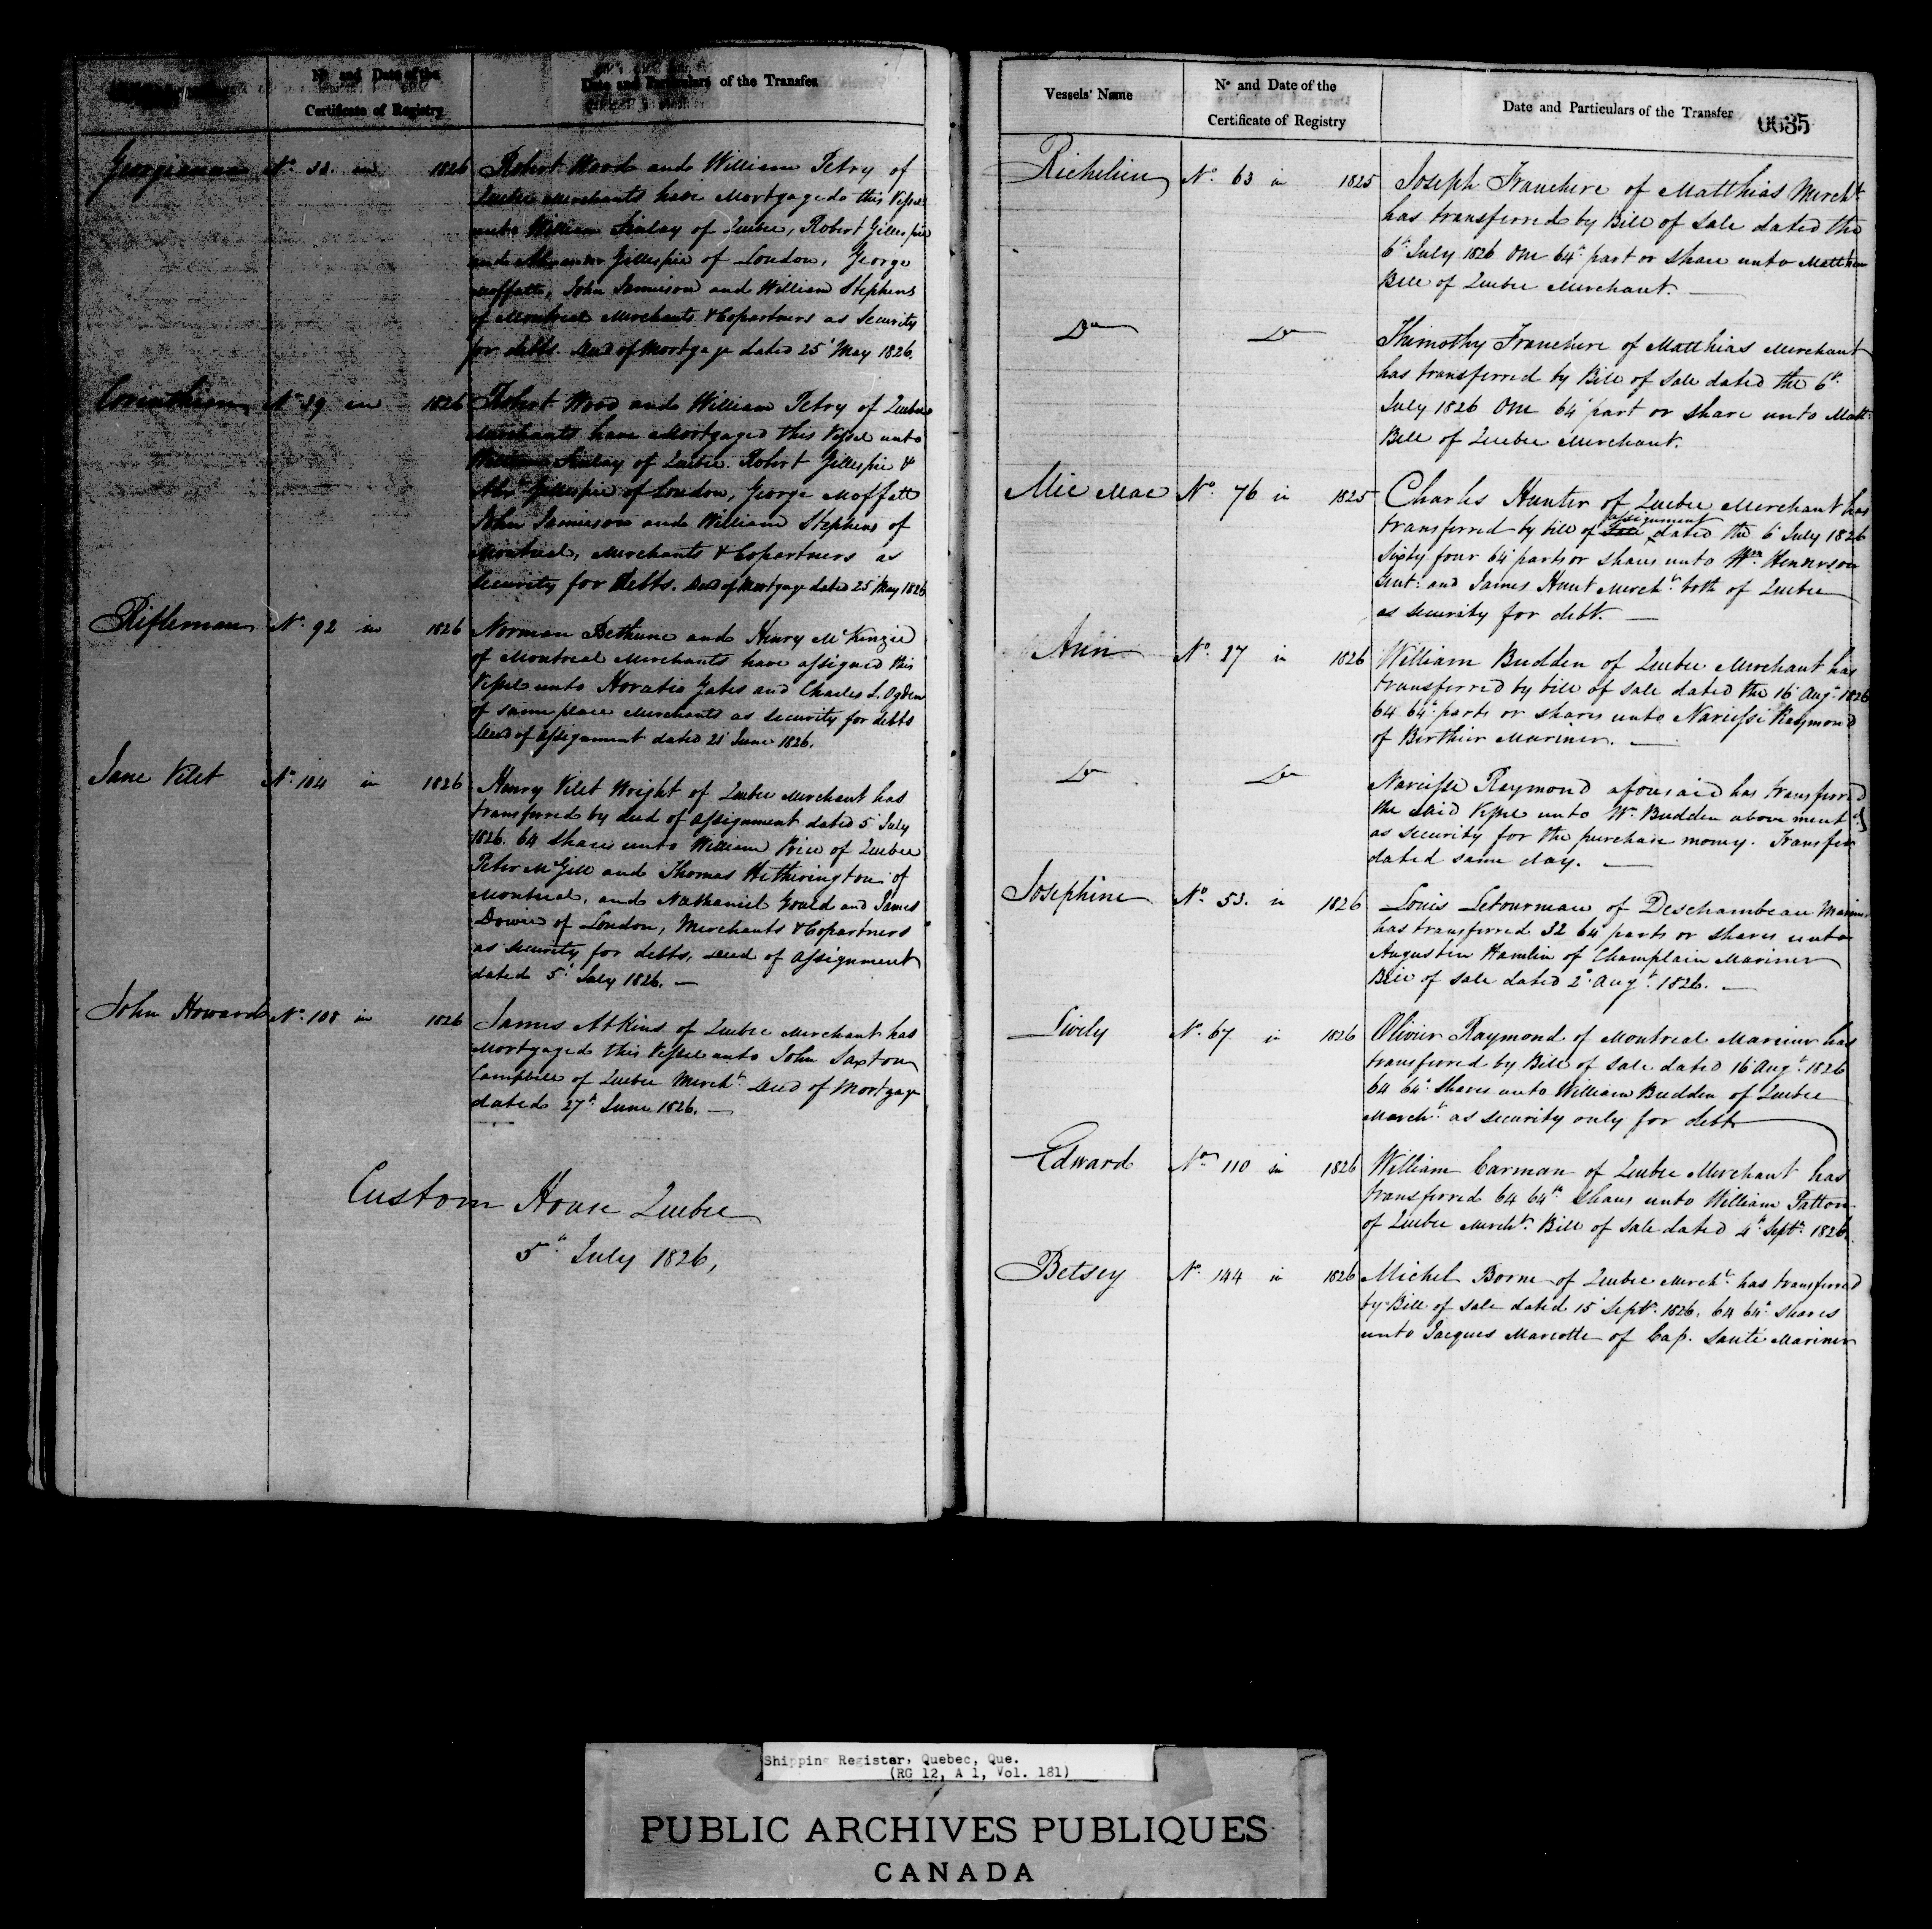 No. and Date of the
Certificate of Registry
Date and Particulars of the Transfer
Georgianna No. 33 in 1826 Robert Wood and William Petry of
Quebec Merchants have Mortgaged this Vessel
unto William Finlay of Quebec, Robert Gillespie
and Alexander Gillespie of London, George
Moffatt, John Jamieson and William Stephens
of Montreal Merchants & Copartners as Security
for debts. Deed of Mortgage dated 25 May 1826.
Corinthian No. 39 in 1826 Robert Wood and William Petry of Quebec
Merchants have Mortgaged this Vessel unto
William Finlay of Quebec. Robert Gillespie &
Alexr. Gillespie of London, George Moffatt
John Jamieson and William Stephens of
Montreal, Merchants & Copartners as
Security for Debts. Deed of Mortgage dated 25 May 1826
Rifleman No. 92 in 1826 Norman Bethune and Henry McKenzie
of Montreal Merchants have assigned this
Vessel unto Horatio Gates and Charles L. Ogden
of same place Merchants as Security for debts
Deed of Assignment dated 21 June 1826.
Jane Vilet No. 104 in 1826 Henry Vilet Wright of Quebec Merchant has
transferred by deed of Assignment dated 5 July
1826. 64 Shares unto William Price of Quebec
Peter McGill and Thomas Hetherington of
Montreal, and Nathaniel Gould and James
Dowie of London, Merchants & Copartners
as Security for debts, Deed of Assignment
dated 5 July 1826. —
John Howard No. 108 in 1826 James Atkins of Quebec Merchant has
Mortgaged this Vessel unto John Saxton
Campbell of Quebec Mercht. Deed of Mortgage
dated 27th June 1826. —
Custom House Quebec
5th July 1826,
Vessels' Name
No and Date of the
Certificate of Registry
Date and Particulars of the Transfer
0635
Richelieu No. 63 in 1825 Joseph Franchere of Matthias Mercht
has transferred by Bill of Sale dated the
6th July 1826 One 64th part or share unto Matthew
Bell of Quebec Merchant. —
Do Do Thimothy Franchere of Matthias Merchant
has transferred by Bill of Sale dated the 6th
July 1826 One 64 part or share unto Matt:
Bell of Quebec Merchant.
Mic Mac No. 76 in 1825 Charles Hunter of Quebec Merchant has
transferred by bill of Sale assignment dated the 6 July 1826
Sixty four 64 parts or shares unto Wm. Henderson
Gent: and James Hunt Mercht. both of Quebec
as security for debt. —
Ann No. 27 in 1826 William Budden of Quebec Merchant has
transferred by bill of Sale dated the 16 Augt. 1826
64 64th parts or shares unto Narcisse Raymond
of Berthier Mariner. —
Do Do Narcisse Raymond aforesaid has transferred
the said Vessel unto Wm. Budden above mentd.
as security for the purchase money. Transfer
dated same day. —
Josephine No. 53. in 1826 Louis Letourneau of Deschambeau Mariner
has transferred 32 64 parts or shares unto
Augustin Hamlin of Champlain Mariner
Bill of Sale dated 2d. Augt. 1826. —
Lively No. 67 in 1826 Olivier Raymond of Montreal Mariner has
transferred by Bill of Sale dated 16 Augt. 1826
64 64th Shares unto William Budden of Quebec
Mercht. as security only for debt
Edward No. 110 in 1826 William Carman of Quebec Merchant has
transferred 64 64th Shares unto William Patton
of Quebec Mercht. Bill of Sale dated 4th Septr. 1826.
Betsey No. 144 in 1826 Michel Borne of Quebec Mercht. has transferred
by Bill of Sale dated 15 Septr. 1826, 64 64th shares
unto Jacques Marcotte of Cap. Santé Mariner
Shipping Register, Quebec, Que.
(RG 12, A 1, Vol. 181)
PUBLIC ARCHIVES PUBLIQUES
CANADA